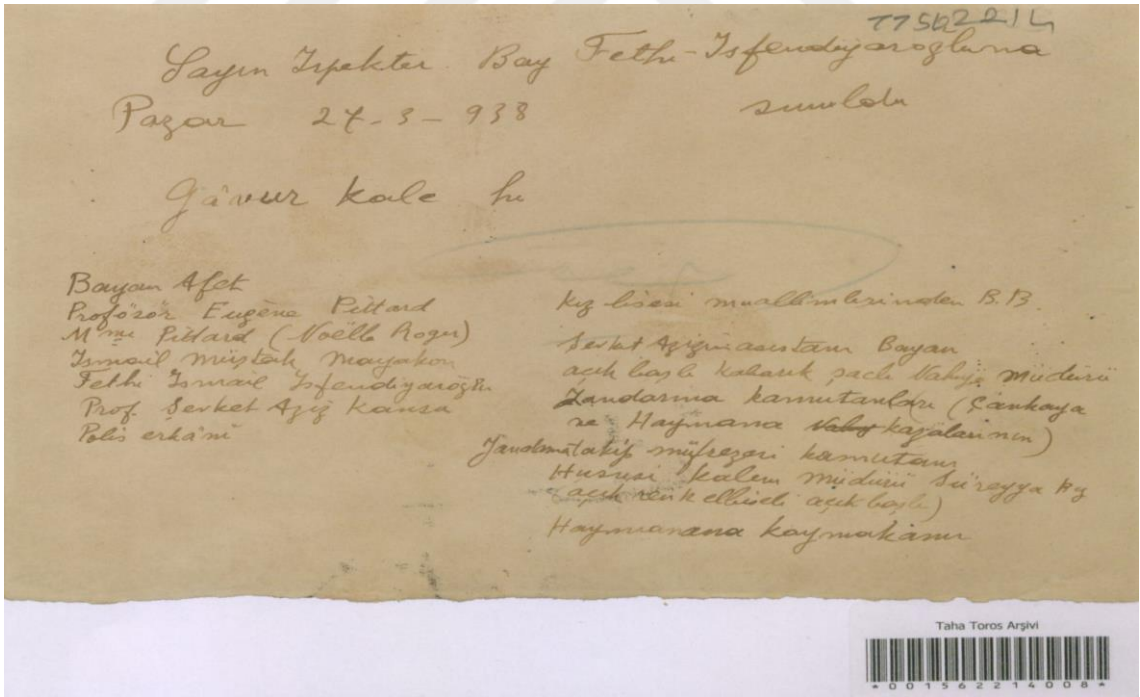 Sayın İspekter Bay Fethi-İsfendiyaroğluna
sunuldu
Pazar 27-3-938
Gâvur kale
Bayan Afet
Profösör Eugène Pittard
Mme Pittard (Noëlle Roger)
İsmail Müştak Mayakon
Fethi İsmail İsfendiyaroğlu
Prof. Şevket Aziz Kansu
Polis erkânı
Kız lisesi muallimlerinden B.B.
Şevket Azizin asistanı Bayan
açık başlı kabarık saçlı Nahiye müdürü
Jandarma kamutanları (Çankaya
ve Haymana kazalarının)
Jandarma takip müfrezesi kamutanı
Hususi kalem müdürü Süreyya By
açık renk elbiseli açık başlı)
Haymanana kaymakamı
Taha Toros Arşivi
*001562214008*